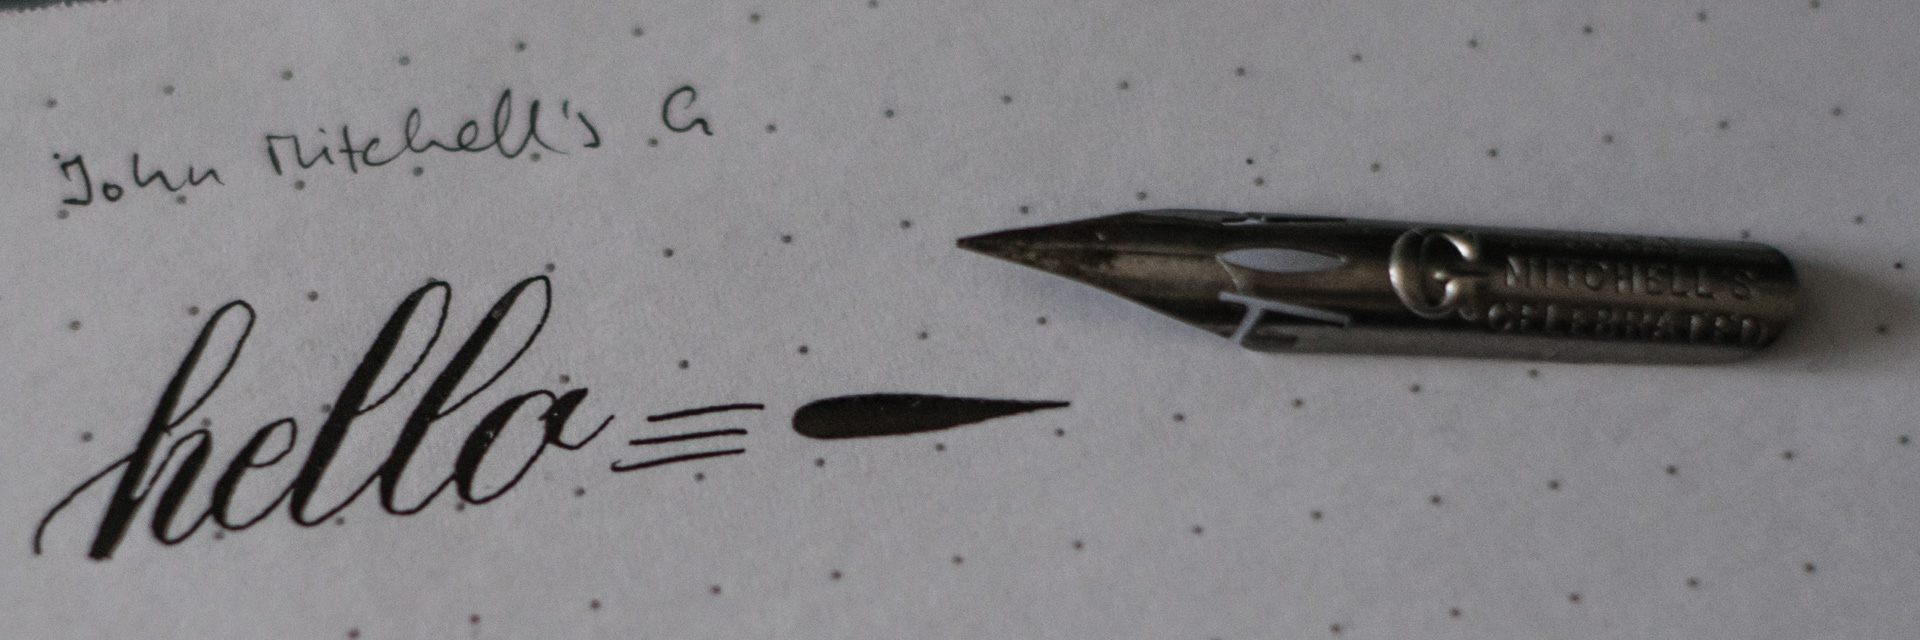 John Mitchell's G
hello
G
MITCHELL'S
CELEBRATED